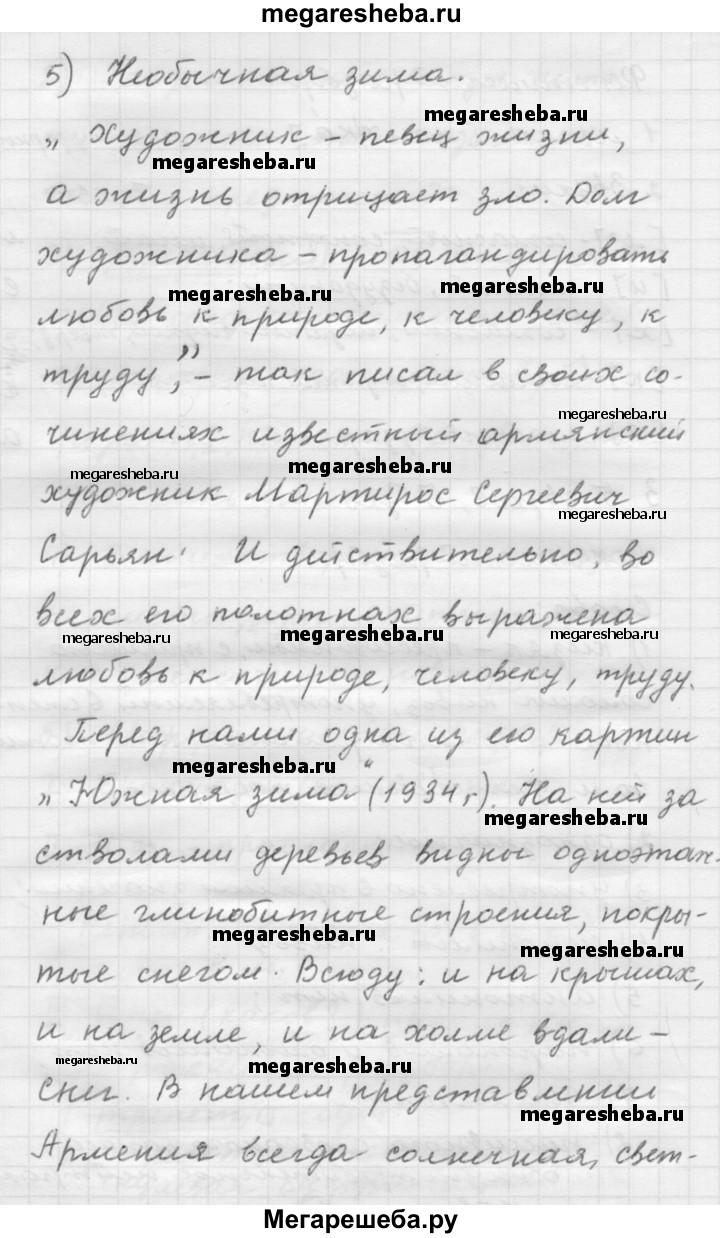 megaresheba.ru
5) Необычная зима.
megaresheba.ru
„Художник – певец жизни,
megaresheba.ru
а жизнь отрицает зло. Долг
художника – пропагандировать
megaresheba.ru megaresheba.ru
любовь к природе, к человеку, к
труду”, – так писал в своих со-
megaresheba.ru
чинениях известный армянский
megaresheba.ru megaresheba.ru
художник Мартирос Сергеевич
megaresheba.ru
Сарьян. И действительно, во
всех его полотнах выражена
megaresheba.ru megaresheba.ru megaresheba.ru
любовь к природе, человеку, труду.
Перед нами одна из его картин
megaresheba.ru
„Южная зима“ (1934 г). На ней за
megaresheba.ru
стволами деревьев видны одноэтаж-
ные глинобитные строения, покры-
megaresheba.ru megaresheba.ru
тые снегом. Всюду: и на крышах,
и на земле, и на холме вдали –
megaresheba.ru megaresheba.ru
снег. В нашем представлении
megaresheba.ru
Армения всегда солнечная, свет-
Мегарешеба.ру